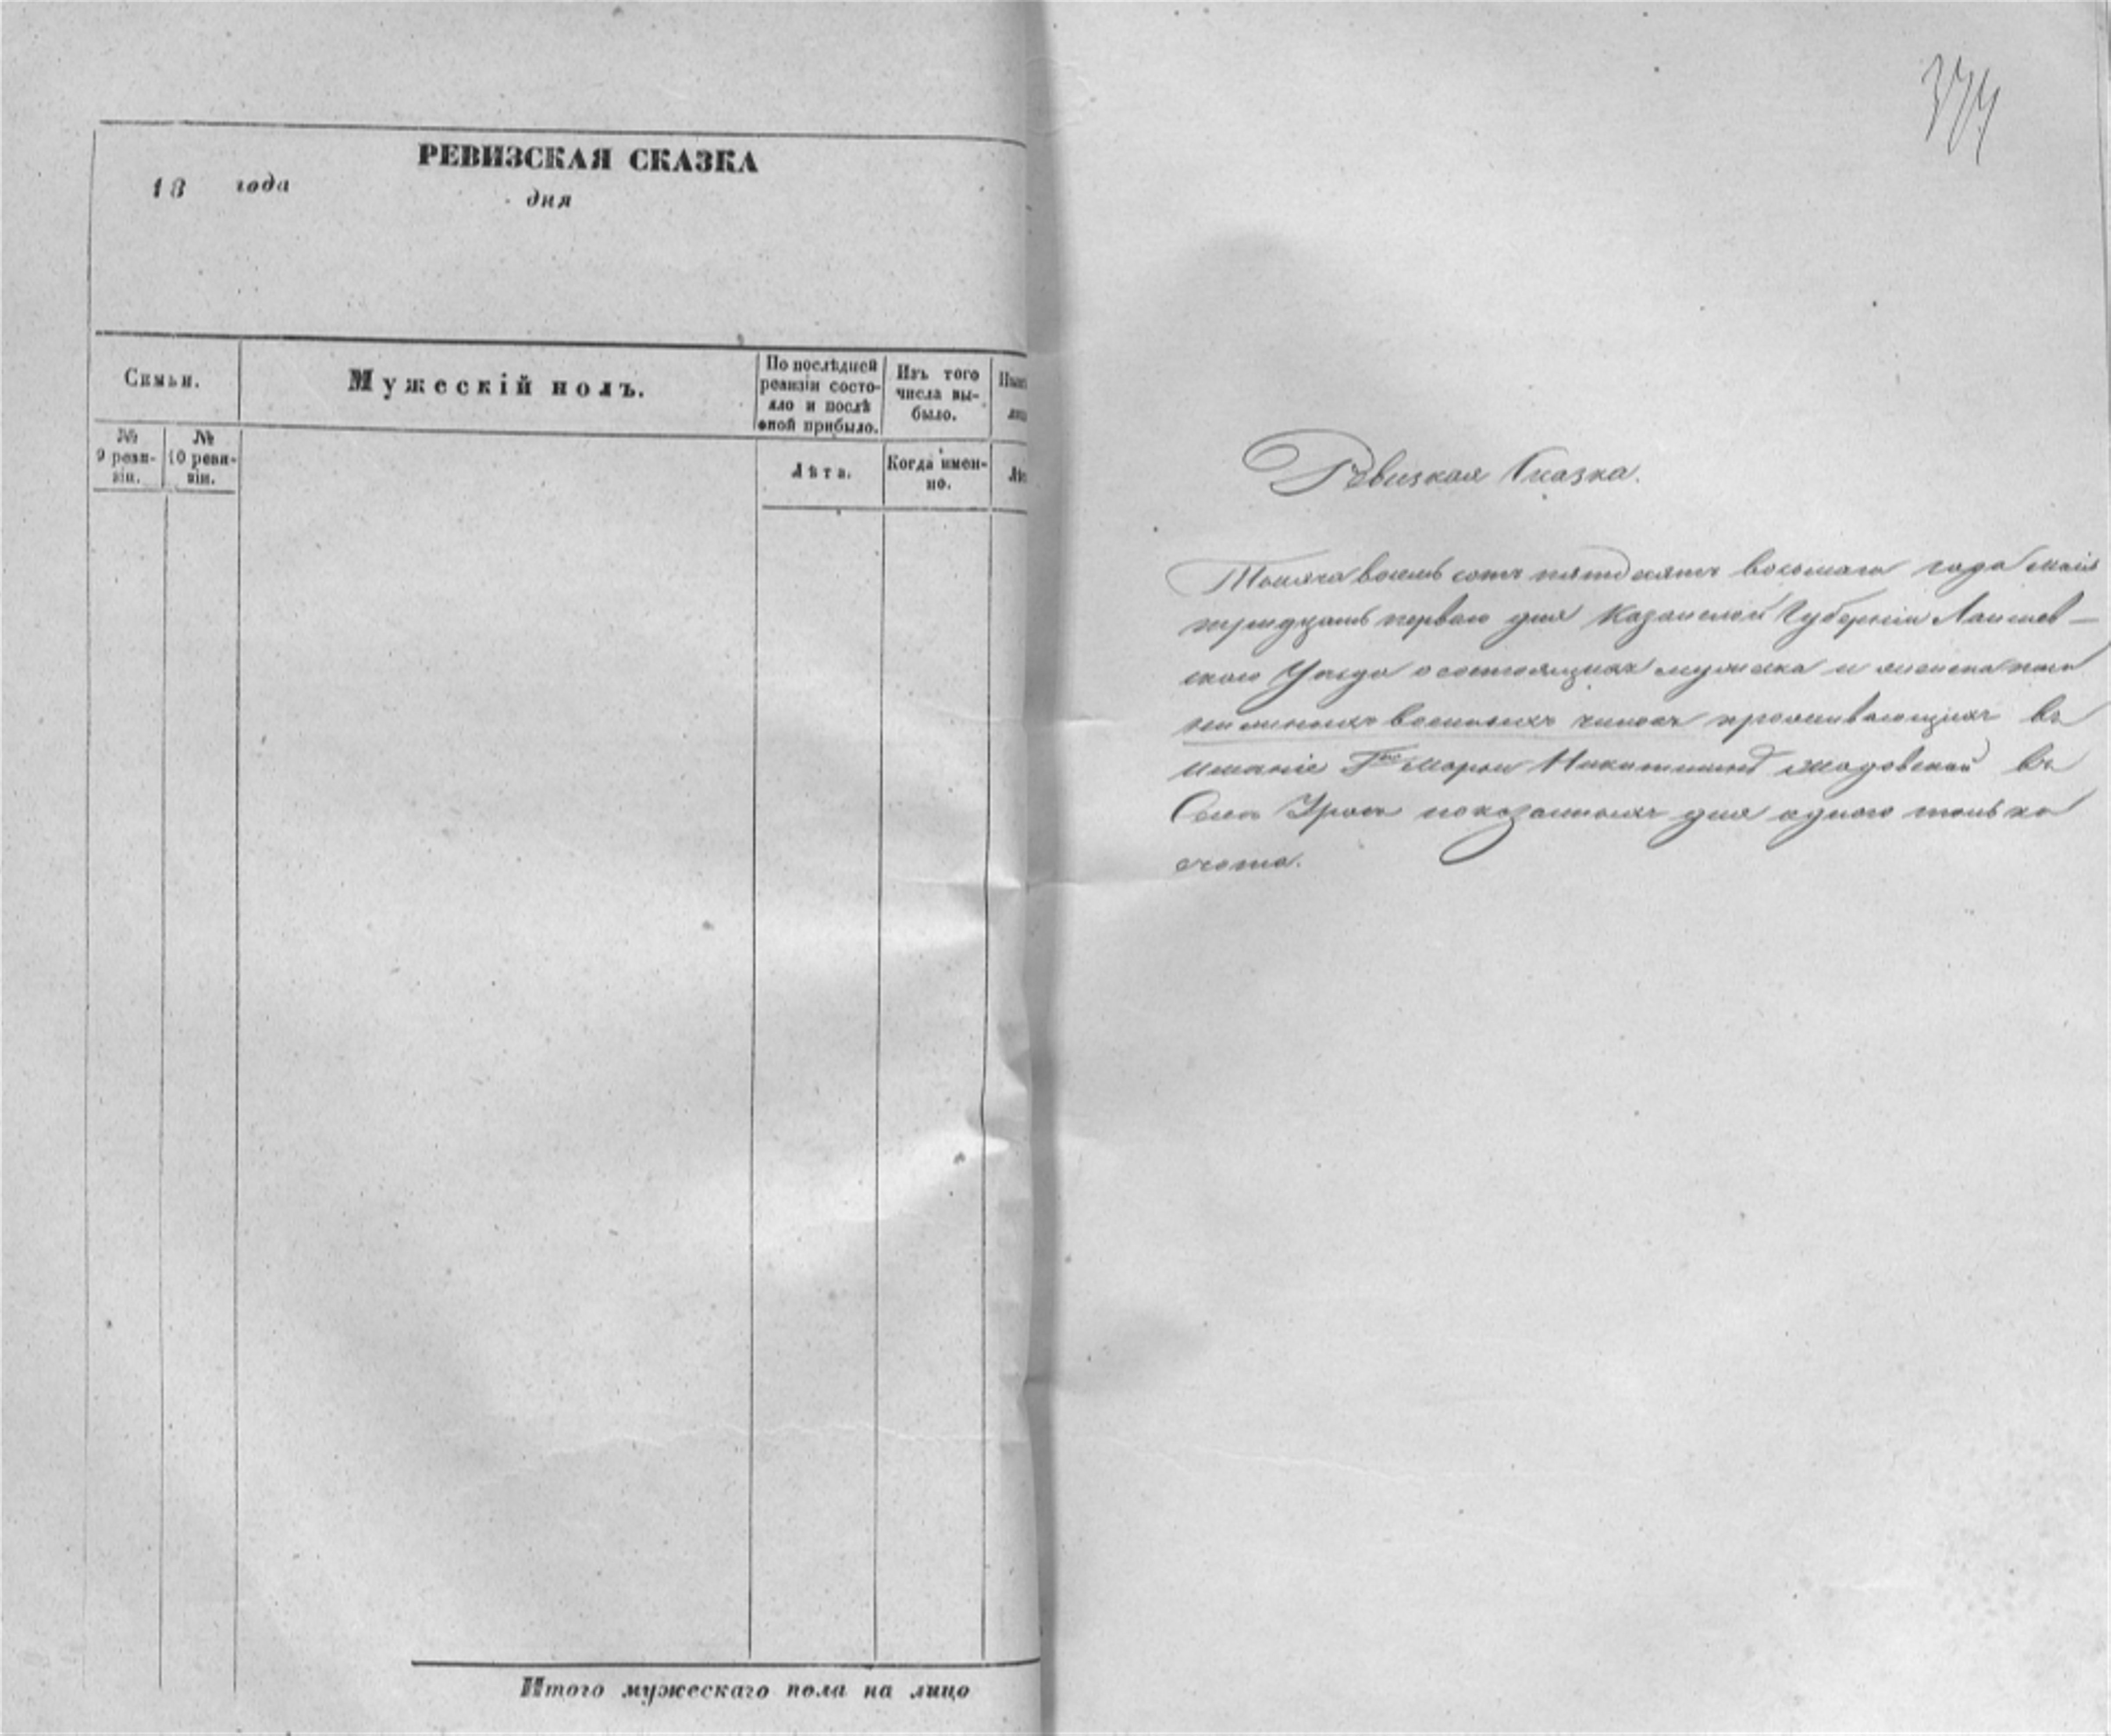 РЕВИЗСКАЯ СКАЗКА
18 года
дня
Семьи.
Мужескій полъ.
По послѣдней ревизіи состо-
яло и послѣ
оной прибыло.
Изъ того
числа вы-
было.
№
9 реви-
зіи.
№
10 реви-
зіи.
Лѣта.
Когда имен-
но.
Итого мужескаго пола на лицо
374
Ревизкая Сказка.
Тысяча восемь сотъ пятдесятъ восьмаго года маія
тридцать перваго дня Казанской Губерніи Лаишев-
скаго Уѣзда о состоящихъ мужска и женска пола
нижнихъ военныхъ чиновъ проживающихъ въ
имѣніе Гжи Марьи Никитишны въ
Селѣ показанныхъ для одного только
счота.